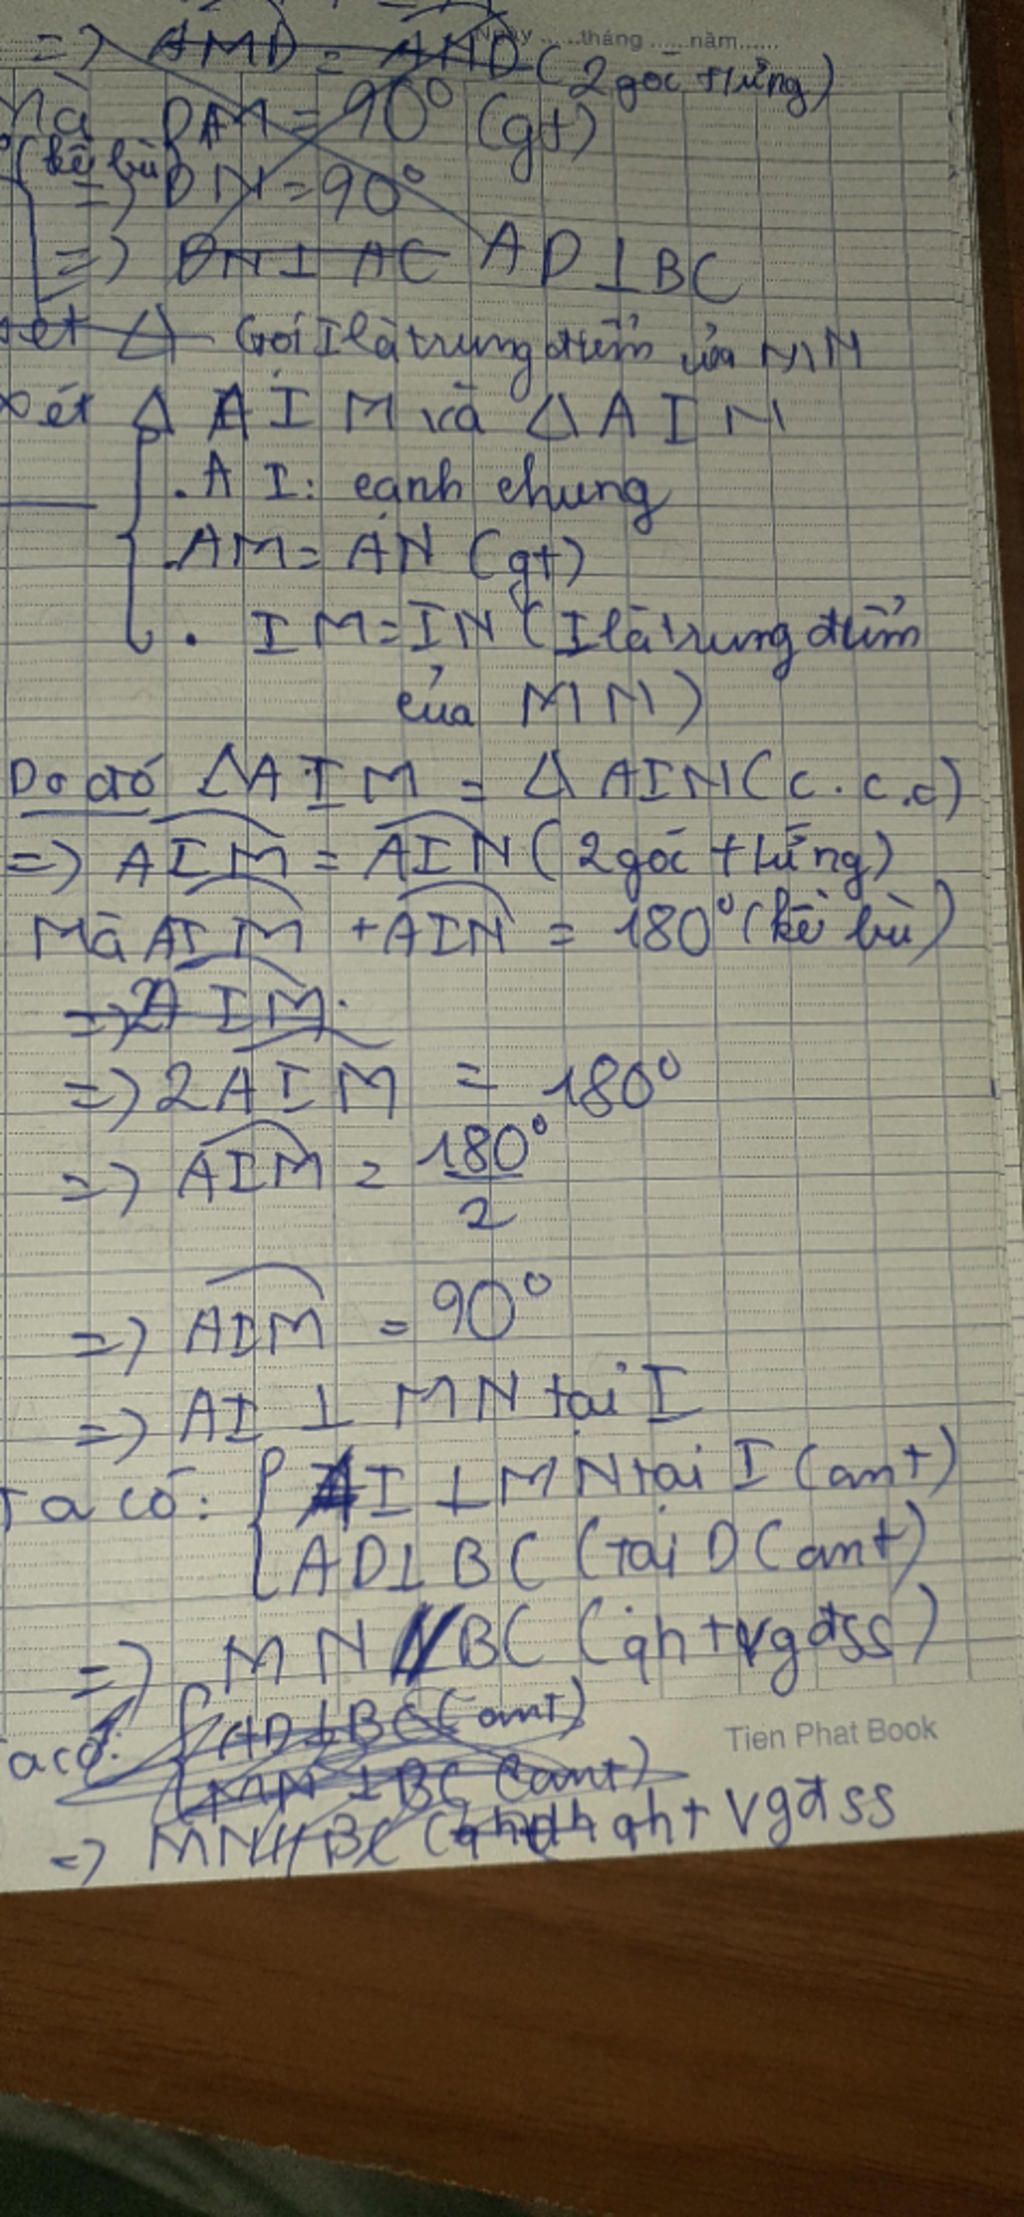 Ngày ......tháng ......năm......
=> AMD = AND (2 góc tứng)
Mà DAM = 90° (gt)
(kề bù)
=> DN = 90°
=> DN ⊥ AC AD ⊥ BC
xét Δ Gọi I là trung điểm của MN
xét Δ AIM và Δ AIN
. AI: cạnh chung
. AM = AN (gt)
. IM = IN (I là trung điểm
của MN)
Do đó ΔAIM = Δ AIN (c.c.c)
=> AIM = AIN (2 góc tứng)
Mà AIM + AIN = 180° (kề bù)
=> 2AIM.
=> 2AIM = 180°
=> AIM = 180°/2
=> AIM = 90°
=> AI ⊥ MN tại I
Ta có: { AI ⊥ MN tại I (cmt)
AD ⊥ BC (tại D (cmt)
=> MN // BC (qh tvgđss)
Ta có: { AD ⊥ BC (cmt)
MN ⊥ BC (cmt)
=> MN // BC ( qh t vgđss
Tien Phat Book